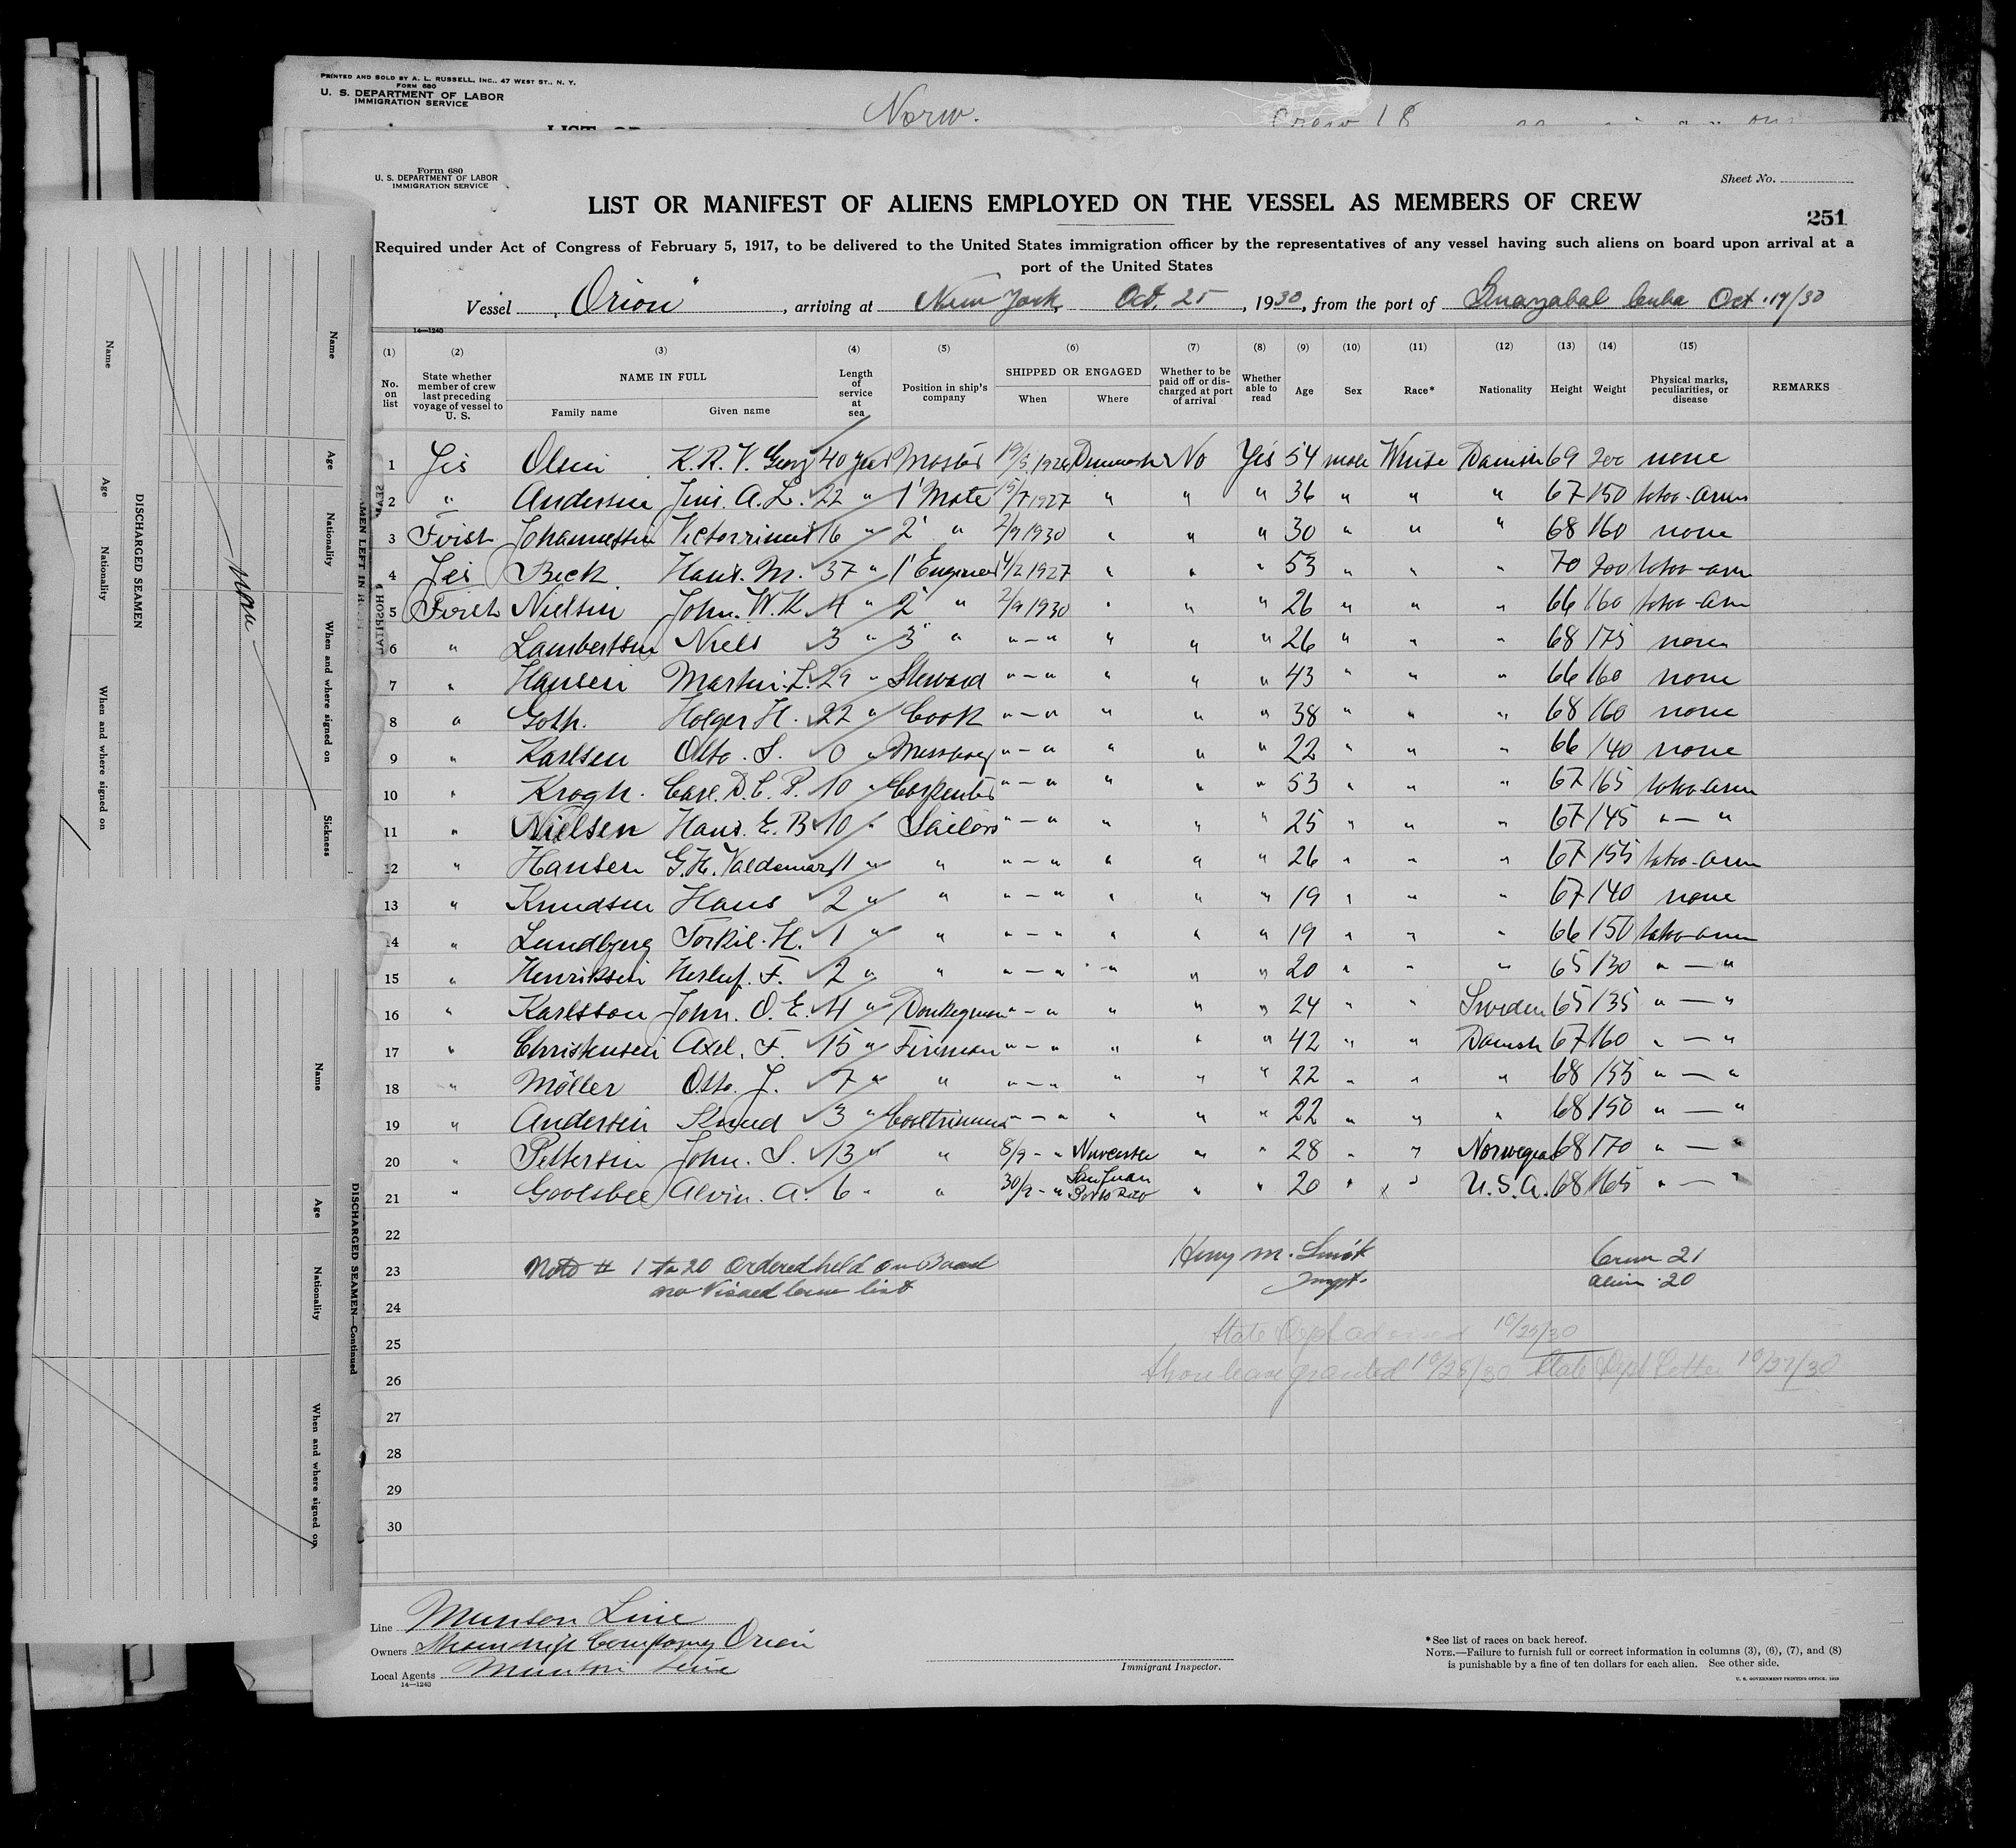 PRINTED AND SOLD BY A. L. RUSSELL, INC., 47 WEST ST., N. Y.
FORM 680
U. S. DEPARTMENT OF LABOR
IMMIGRATION SERVICE
Norw.
Crew 18
Form 680
U. S. DEPARTMENT OF LABOR
IMMIGRATION SERVICE
Sheet No.
LIST OR MANIFEST OF ALIENS EMPLOYED ON THE VESSEL AS MEMBERS OF CREW
251
Required under Act of Congress of February 5, 1917, to be delivered to the United States immigration officer by the representatives of any vessel having such aliens on board upon arrival at a
port of the United States
Vessel "Orion", arriving at New York, Oct. 25, 1930, from the port of Guayabal Cuba Oct. 17/30
14—1240
(1) (2) (3) (4) (5) (6) (7) (8) (9) (10) (11) (12) (13) (14) (15)
No. on list
State whether member of crew last preceding voyage of vessel to U. S.
NAME IN FULL
Family name
Given name
Length of service at sea
Position in ship's company
SHIPPED OR ENGAGED
When
Where
Whether to be paid off or discharged at port of arrival
Whether able to read
Age
Sex
Race*
Nationality
Height
Weight
Physical marks, peculiarities, or disease
REMARKS
1 Yes Olsen K. R. V. Georg 40 year Master 19/5 1926 Denmark No Yes 54 male White Danish 69 200 none
2 " Andersen Jens. A. L. 22 " 1' Mate 15/7 1927 " " " 36 " " " 67 150 tatoo-arm
3 First Johannessen 16 " 2' " 2/9 1930 " " " 30 " " " 68 160 none
4 Yes Beck Hans. M. 37 " 1' Engineer 4/2 1927 " " " 53 " " " 70 200 tatoo-arm
5 First Nielsen John. W. K 4 " 2' " 2/9 1930 " " " 26 " " " 66 160 tatoo-arm
6 " Lambertsen Niels 3 " 3' " "-" " " " 26 " " " 68 175 none
7 " Hansen Martin. L. 29 " Steward "-" " " " 43 " " " 66 160 none
8 " Goth. Holger H. 22 " Cook "-" " " " 38 " " " 68 160 none
9 " Karlsen Otto. S. 0 " Messboy "-" " " " 22 " " " 66 140 none
10 " Krogh. Carl. D. C. P. 10 " Carpenter "-" " " " 53 " " " 67 165 tatoo-arm
11 " Nielsen Hans. E. B 10 " Sailors "-" " " " 25 " " " 67 145 "—"
12 " Hansen G. H. Valdemar 11 " " "-" " " " 26 " " " 67 155 tatoo-arm
13 " Knudsen Hans 2 " " "-" " " " 19 " " " 67 140 none
14 " Lundbjerg Torkil. H. 1 " " "-" " " " 19 " " " 66 150 tatoo-arm
15 " Henriksen Herluf. F. 2 " " "-" "-" " " 20 " " " 65 130 "—"
16 " Karlsson John. O. E. 4 " Donkeyman "-" " " " 24 " " Sweden 65 135 "—"
17 " Christensen Axel. F. 15 " Fireman "-" " " " 42 " " Danish 67 160 "—"
18 " Möller Otto. J. 7 " " "-" " " " 22 " " " 68 155 "—"
19 " Andersen Knud 3 " Coaltrimmer "-" " " " 22 " " " 68 150 "—"
20 " Pettersen John. S. 13 " " 8/9 - " " " 28 " " Norwegian 68 170 "—"
21 " Goolsbee Alvin. A. 6 " " 30/9 - " San Juan Porto Rico " " 20 " x " U.S.A. 68 165 "—"
22
23 Note # 1 to 20 Ordered held on Board Henry M. Smith Crew 21
no Visaed crew list Inspt. Alien 20
24
25 State Dept advised 10/25/30
26 Shore leave granted 10/25/30 State Dept Letter 10/27/30
27
28
29
30
Line Munson Line
Owners Steamship Company Orion
Local Agents Munson Line
14—1240
Immigrant Inspector.
*See list of races on back hereof.
NOTE.—Failure to furnish full or correct information in columns (3), (6), (7), and (8)
is punishable by a fine of ten dollars for each alien. See other side.
U. S. GOVERNMENT PRINTING OFFICE, 1929
Name
Age
Nationality
When and where signed on
DISCHARGED SEAMEN
Name
Age
Nationality
When and where signed on
Sickness
None
Name
Age
Nationality
When and where signed on
DISCHARGED SEAMEN—Continued